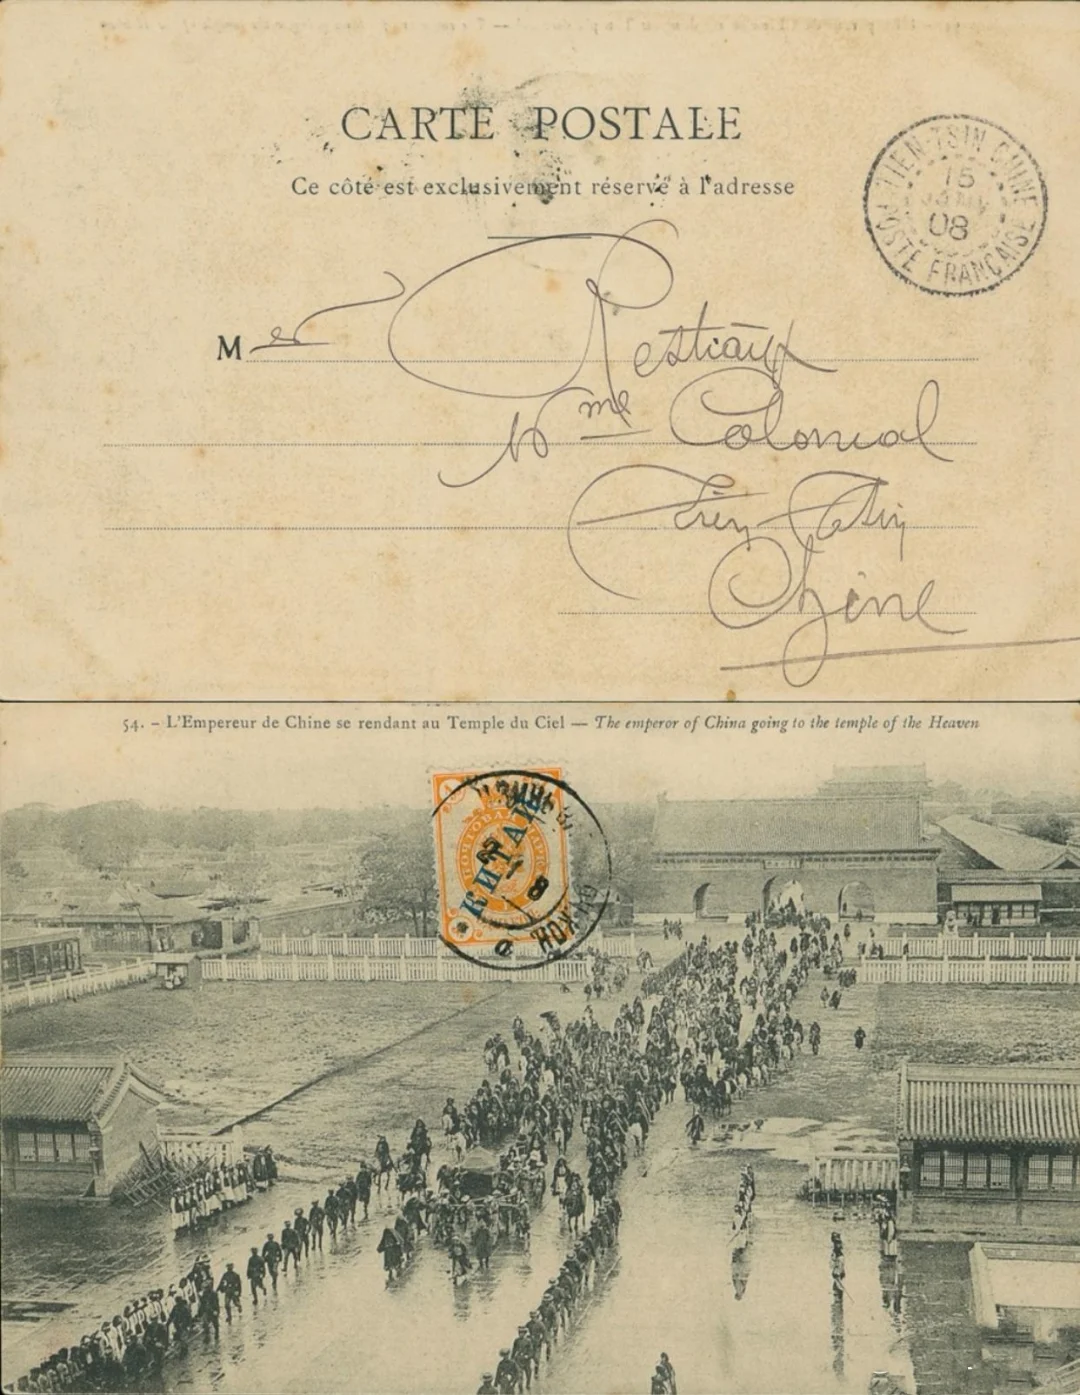 CARTE POSTALE
Ce côté est exclusivement réservé à l'adresse
TIEN-TSIN CHINE
15
JANV
08
POSTE FRANÇAISE
M er Restiaux
16 me Colonial
Tien-Tsin
Chine
54. – L'Empereur de Chine se rendant au Temple du Ciel — The emperor of China going to the temple of the Heaven
1
ПОЧТОВАЯ МАРКА
КИТАЙ
8